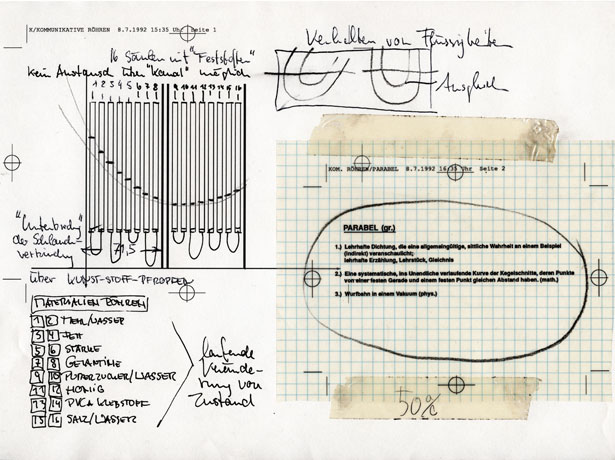 K/KOMMUNIKATIVE RÖHREN 8.7.1992 15:35 Uhr Seite 1
16 Säulen mit "Feststoffen"
kein Austausch über "Kanal" möglich
1 2 3 4 5 6 7 8 9 10 11 12 13 14 15 16
"Unterbrechung
der Schlauch-
verbindung
über KUNST-STOFF-PFROPFEN
MATERIALIEN RÖHREN
1 2 MEHL/WASSER
3 4 FETT
5 6 STÄRKE
7 8 GELANTINE
9 10 PUDERZUCKER/WASSER
11 12 HONIG
13 14 PVC & KLEBSTOFF
15 16 SALZ/WASSER
laufende
Verände-
rung von
Zustand
Verhalten von Flüssigkeiten
Ausgleich
KOM. RÖHREN/PARABEL 8.7.1992 16:35 Uhr Seite 2
PARABEL (gr.)
1.) Lehrhafte Dichtung, die eine allgemeingültige, sittliche Wahrheit an einem Beispiel
(indirekt) veranschaulicht;
lehrhafte Erzählung, Lehrstück, Gleichnis
2.) Eine systematische, ins Unendliche verlaufende Kurve der Kegelschnitte, deren Punkte
von einer festen Gerade und einem festen Punkt gleichen Abstand haben. (math.)
3.) Wurfbahn in einem Vakuum (phys.)
50%